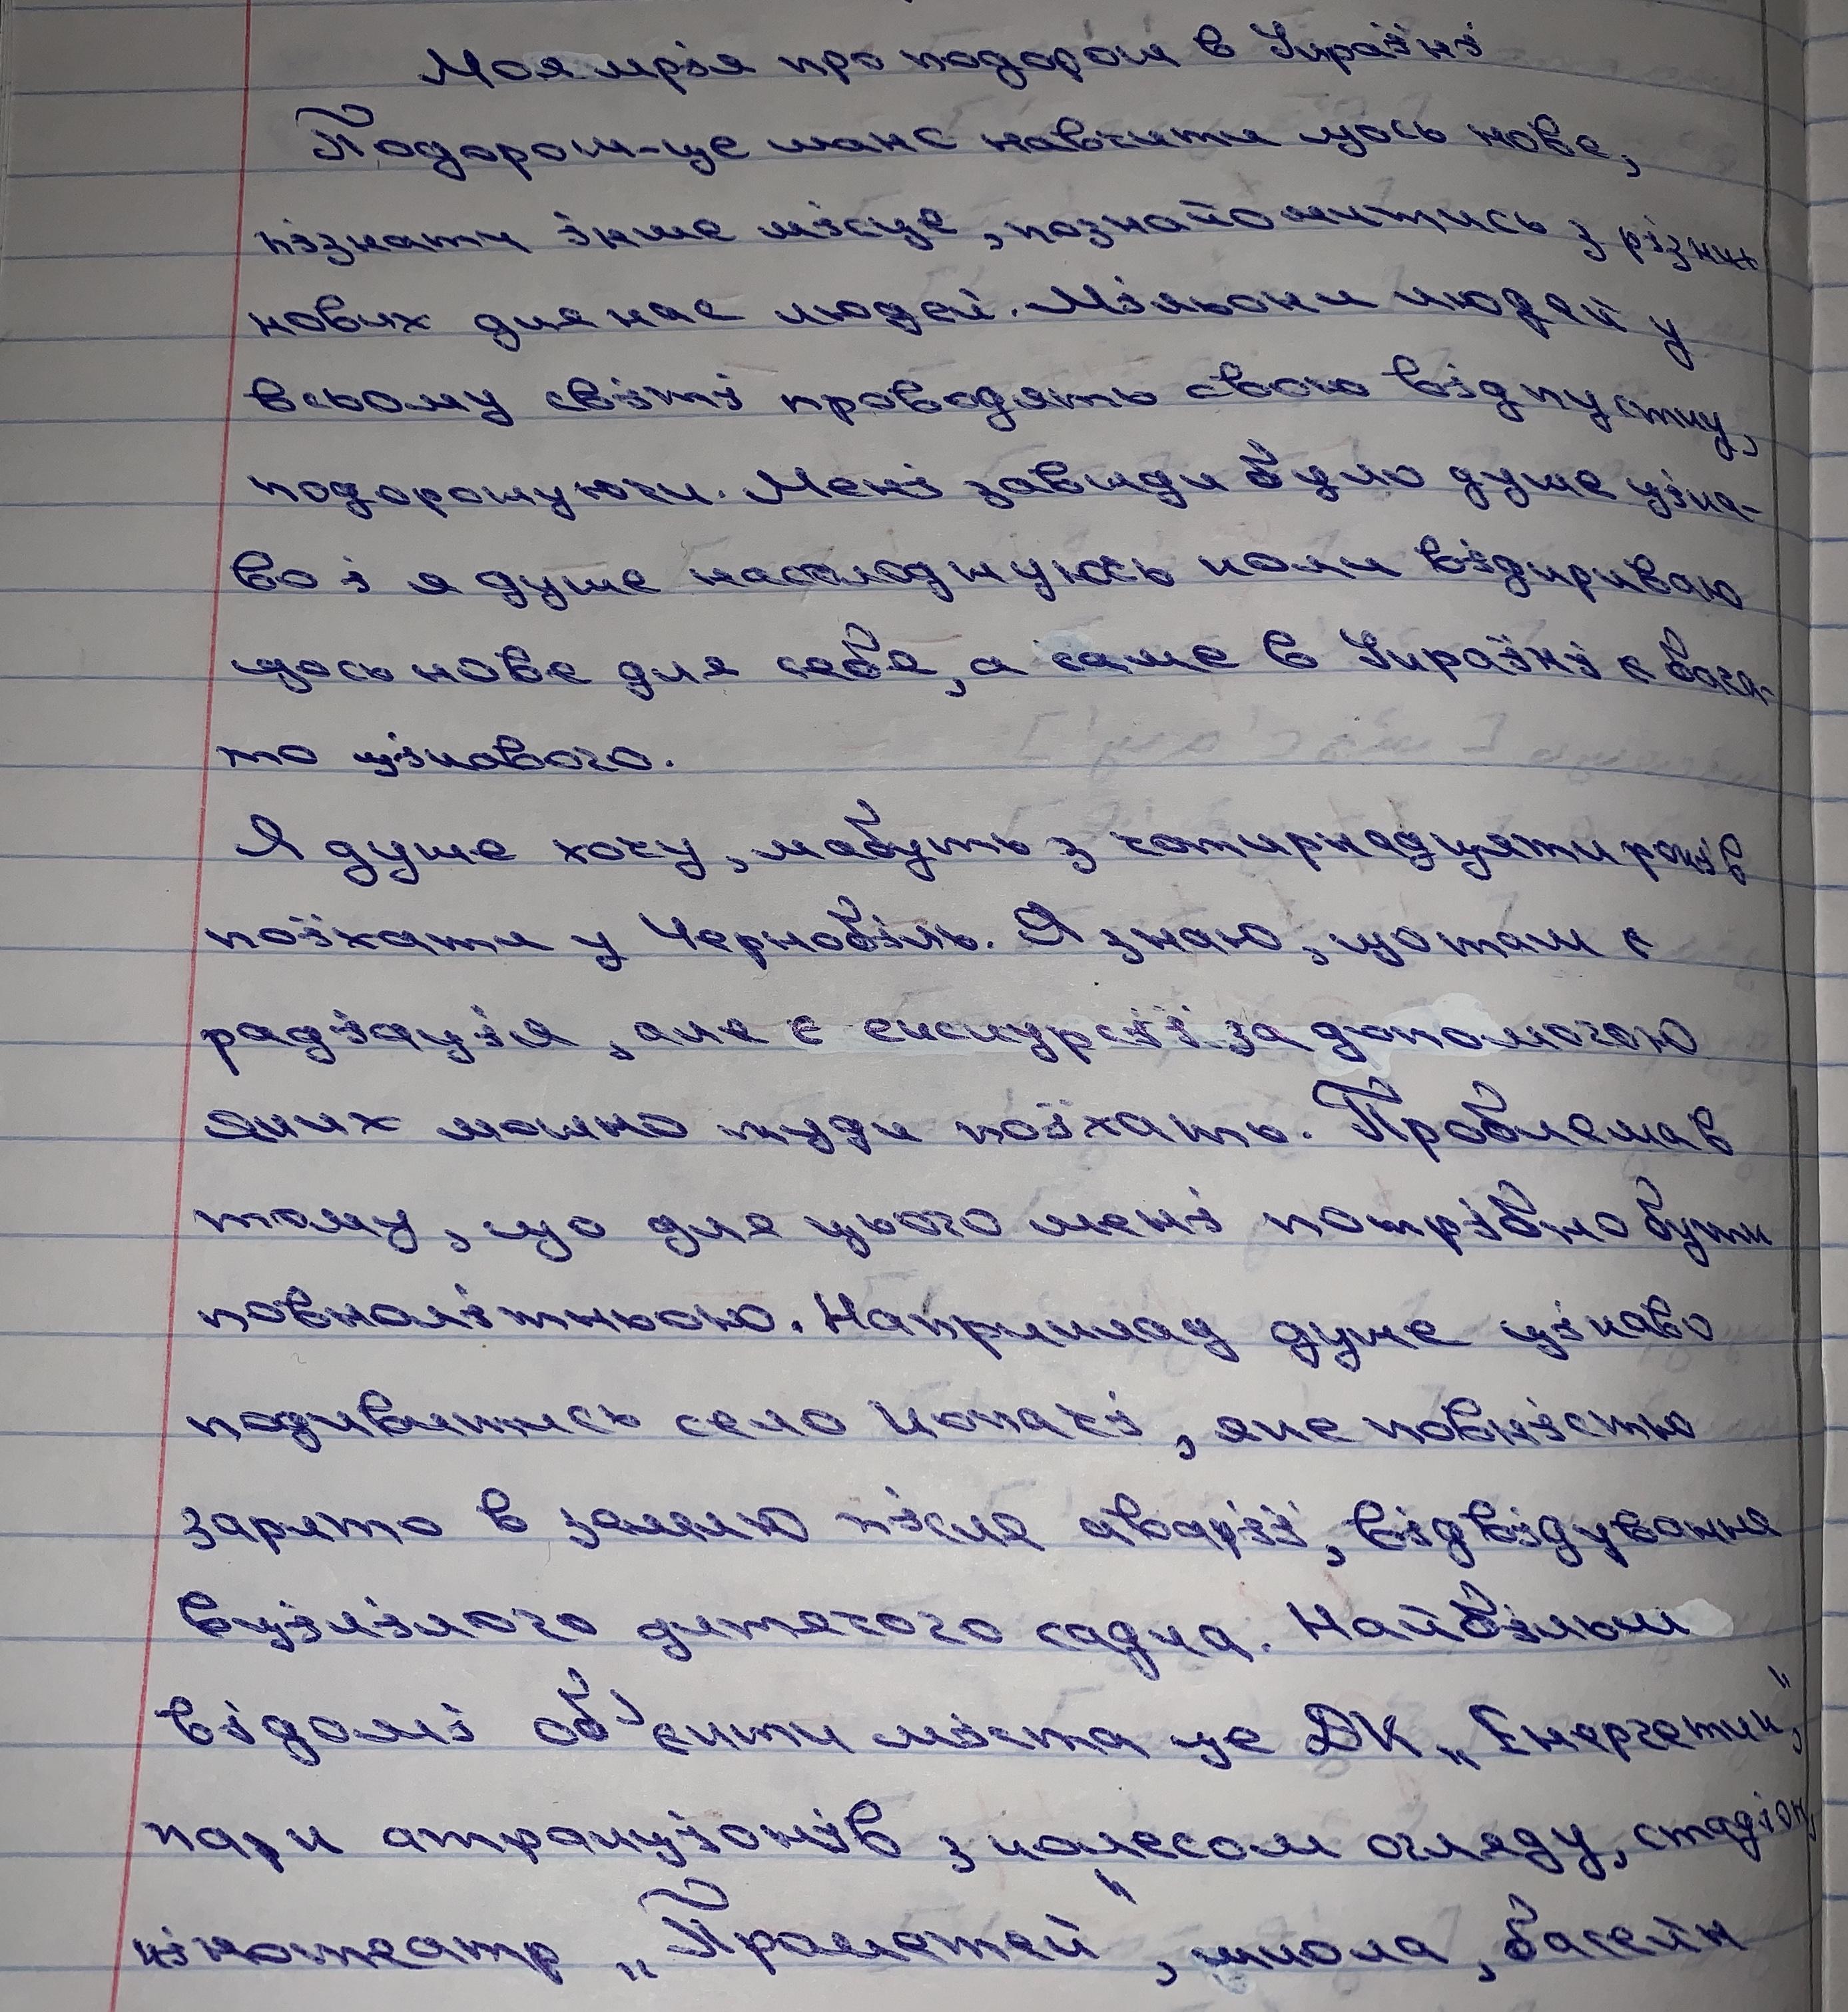 Моя мрія про подорож в Україні
Подорож-це шанс навчити щось нове,
пізнати інше місце, познайомитись з різних
нових для нас людей. Мільони людей у
всьому світі проводять свою відпустку,
подорожуючи. Мені завжди було дуже ціка-
во і я дуже насолоджуюсь коли відкриваю
щось нове для себе, а саме в Україні є бага-
то цікавого.
Я дуже хочу, мабуть з чотирнадцяти років
поїхати у Чернобіль. Я знаю, що там є
радіація, але є екскурсії за допомогою
яких можно туди поїхать. Проблема в
тому, що для цього мені потрібно бути
повнолітньою. Наприклад дуже цікаво
подивитись село Копачі, яке повністю
зарито в землю після аварії, відвідування
вцілілого дитячого садка. Найбільш
відомі об'єкти міста це ДК „Енергетик",
парк атракціонів з колесом огляду, стадіон,
кінотеатр „Прометей", школа, басейн